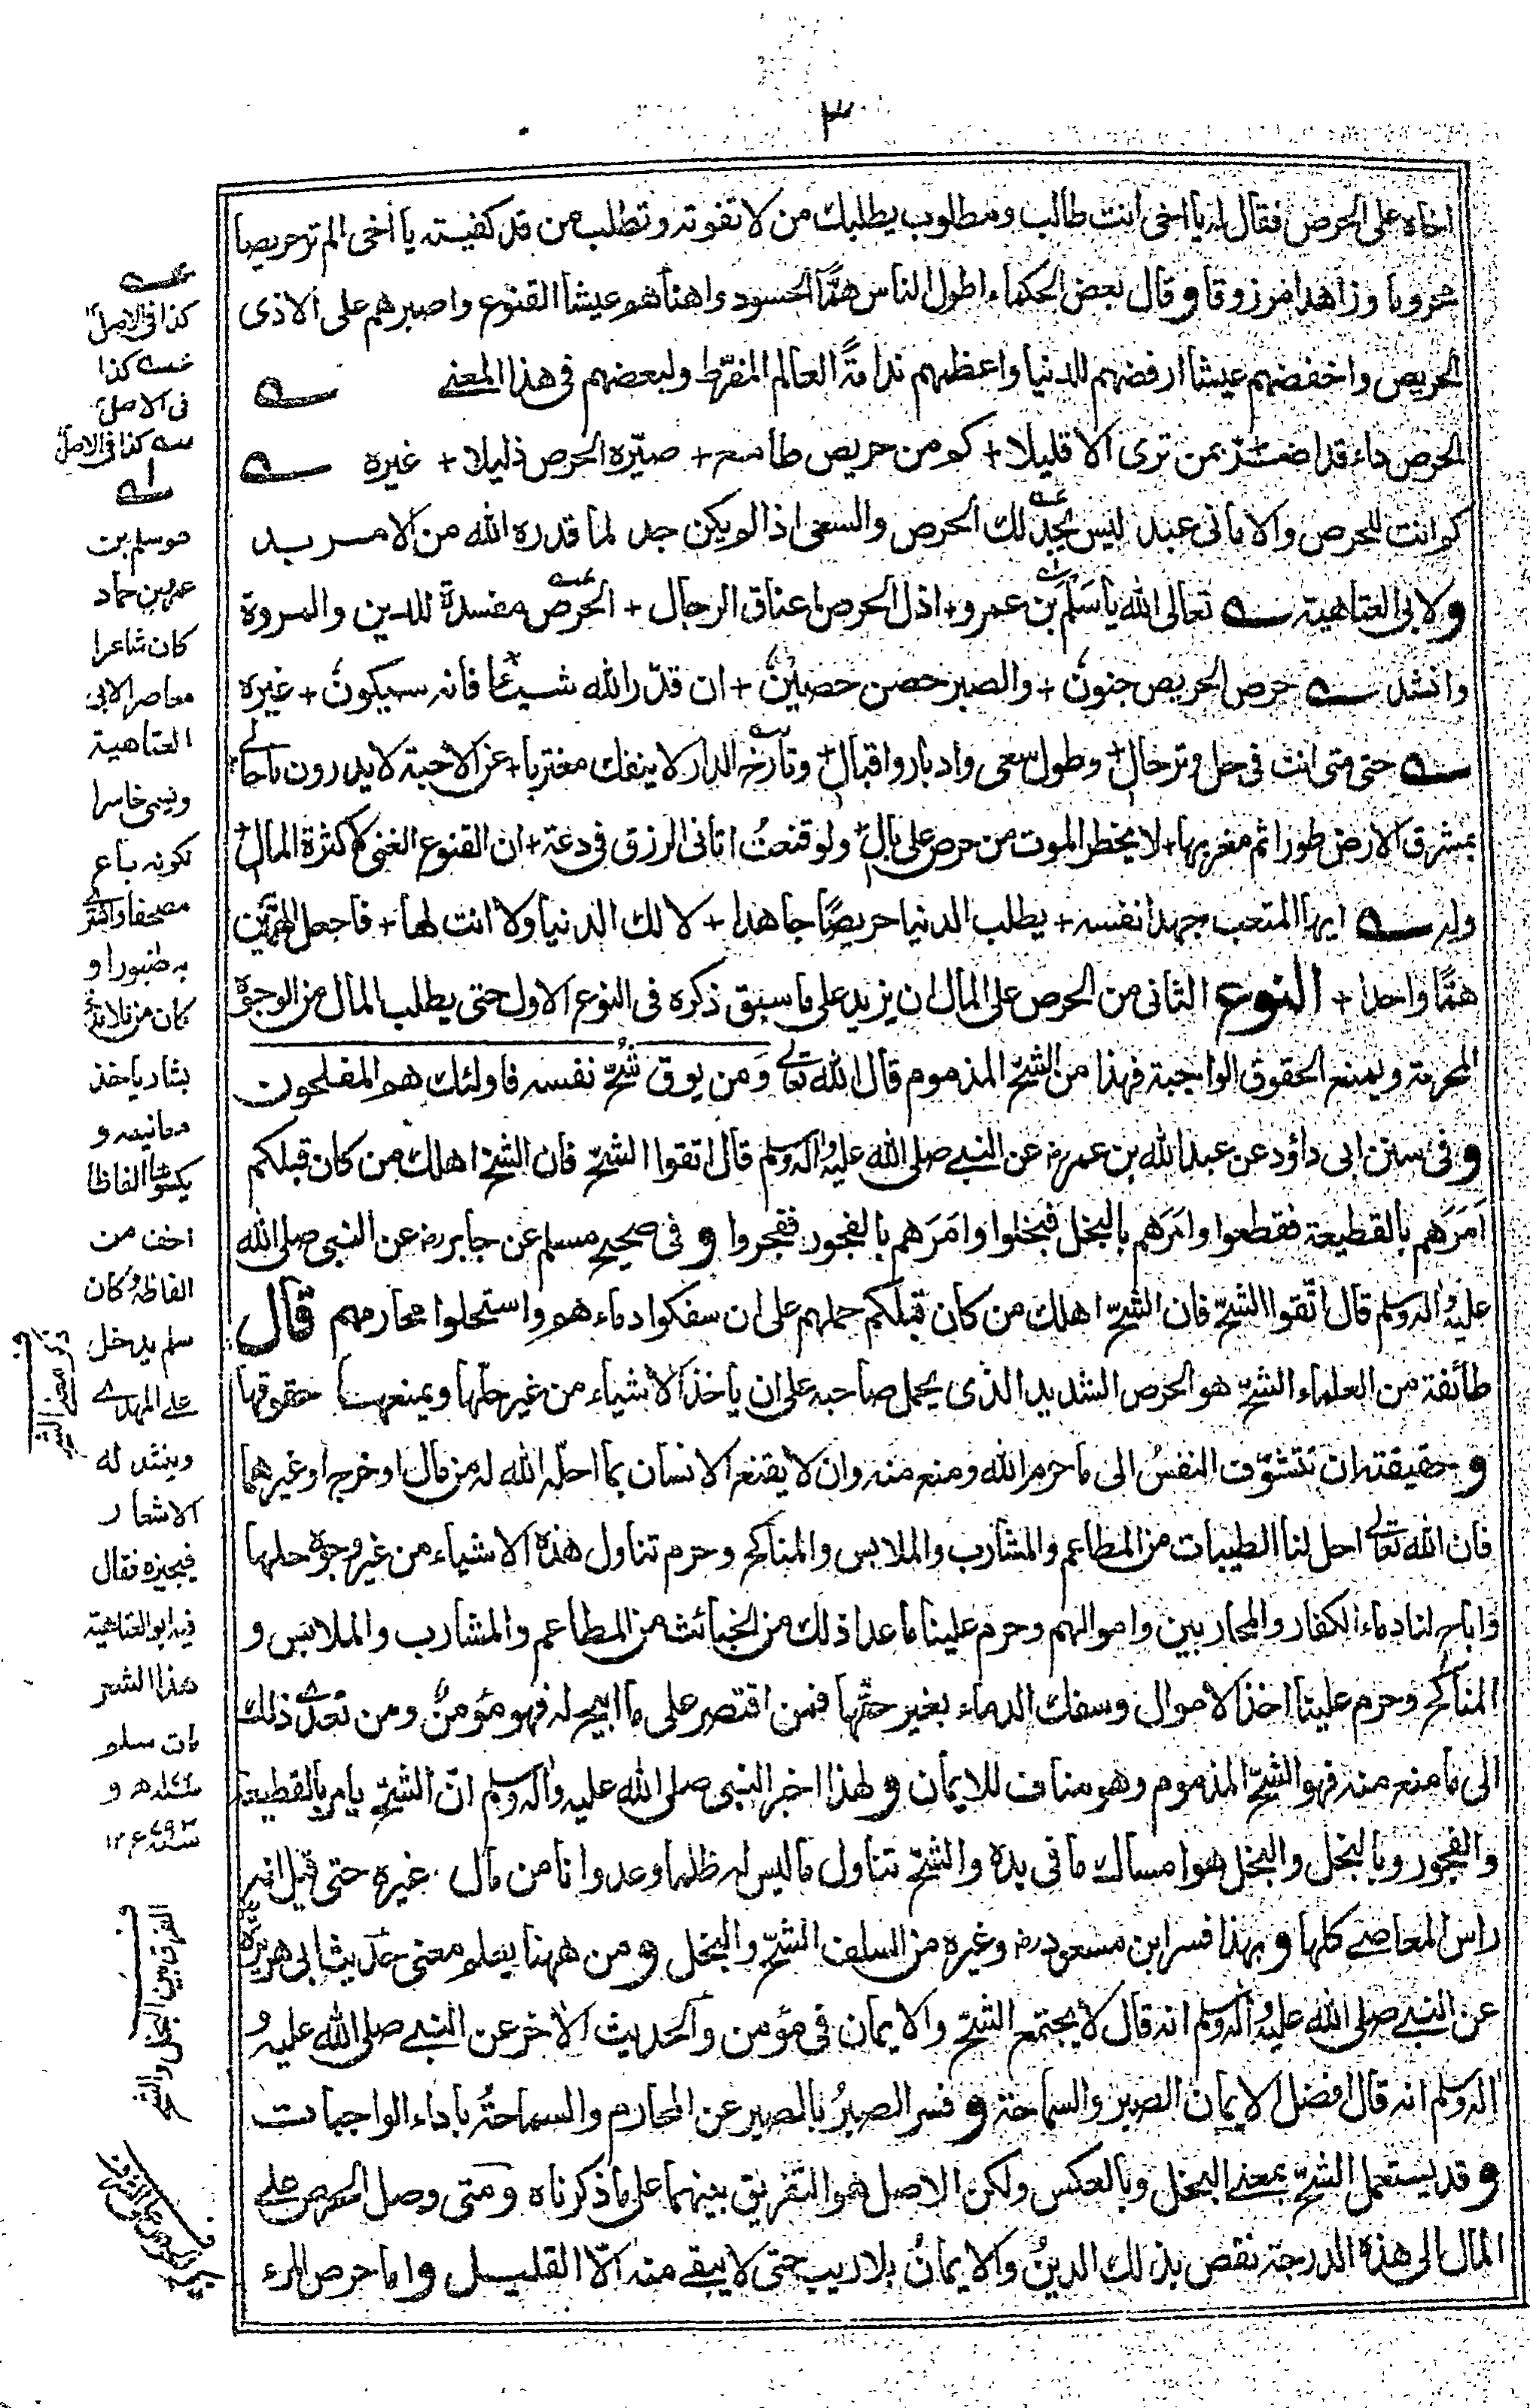 ٣
اخاه على الحرص فقال له يا اخى انت طالب ومطلوب يطلبك من لا تفوته وتطلب من قد كفيته يا اخى الم تر حريصا
محروما وزاهدا مرزوقا وقال بعض الحكماء اطول الناس همًّا الحسود واهنأهم عيشا القنوع واصبرهم على الاذى
الحريص واخفضهم عيشا ارفضهم للدنيا واعظمهم ندامةً العالم المفرّط ولبعضهم فى هذا المعنے
الحرص داء قد اضر بمن ترى الا قليلا + كم من حريص طامع + صيّره الحرص ذليلا + غيره
كم انت للحرص والامانى عبد ليس يجد لك الحرص والسعى اذا لم يكن جد لما قدره الله من الامر بد
ولابى العتاهية تعالى الله يا سَلَم بن عمرو + اذل الحرص اعناق الرجال + الحرص مفسدة للدين والمروة
وانشد حرص الحريص جنونٌ + والصبر حصن حصينٌ + ان قدّر الله شيئًا فانه سيكونٌ + غيره
حتى متى انت فى حل وترحال + وطول سعى وادبار واقبال + ونازح الدار لا ينفك مغتربا + عن الاحبة لا يدرون ما حالے
بمشرق الارض طورا ثم مغربها + لا يخطر الموت من حرص على بال + ولو قنعتُ اتانى الرزق فى دعة + ان القنوع الغنى لا كثرة المال +
وله ايها المتعب جهدا نفسه + يطلب الدنيا حريصًا جاهدا + لا لك الدنيا ولا انت لها + فاجعل الهمّين
همًّا واحدا + النوع الثانى من الحرص على المال ان يزيد على ما سبق ذكره فى النوع الاول حتى يطلب المال من الوجوه
المحرمة ويمنع الحقوق الواجبة فهذا من الشحّ المذموم قال الله تعالے وَمن يوق شُحّ نفسه فاولئك هم المفلحون
وفى سنن ابى داؤد عن عبد الله بن عمرو رض عن النبے صلى الله عليه واله وسلم قال اتقوا الشحّ فان الشحّ اهلك من كان قبلكم
اَمَرَهم بالقطيعة فقطعوا وامَرَهم بالبخل فبخلوا وامَرَهم بالفجور ففجروا و فى صحيح مسلم عن جابر رض عن النبى صلى الله
عليه واله وسلم قال اتّقوا الشحّ فان الشحّ اهلك من كان قبلكم حملهم على ان سفكوا دماءهم واستحلوا محارمهم قال
طائفة من العلماء الشحّ هو الحرص الشديد الذى يحمل صاحبه على ان ياخذ الاشياء من غير حلّها ويمنعها حقوقها
و حقيقته ان تتشوّف النفسُ الى ما حرم الله ومنع منه وان لا يقنع الانسان بما احلّه الله له من مال او فرج او غيرهما
فان الله تعالے احل لنا الطيبات من المطاعم والمشارب والملابس والمناكح وحرم تناول هذه الاشياء من غير وجوه حلها
واباح لنا دماء الكفار والمحاربين واموالهم وحرم علينا ما عدا ذلك من الخبائث من المطاعم والمشارب والملابس و
المناكح وحرم علينا اخذ الاموال وسفك الدماء بغير حقّها فمن اقتصر على ما ابيح له فهو مؤمنٌ ومن تعدّے ذلك
الى ما منع منه فهو الشحّ المذموم وهو مناف للايمان و لهذا اخبر النبى صلى الله عليه واله وسلم انّ الشحّ يامر بالقطيعة
والفجور وبالبخل والبخل هو امساك ما فى يده والشحّ تناول ما ليس له ظلما وعدوانا من مال غيره حتى قيل انه
راس المعاصے كلها و بهذا فسر ابن مسعود رض وغيره من السلف الشحّ والبخل و من ههنا يعلم معنى حديث ابى هريرة
عن النبے صلى الله عليه واله وسلم انه قال لا يجتمع الشحّ والايمان فى مؤمن والحديث الاخر عن النبے صلى الله عليه و
اله وسلم انه قال افضل الايمان الصبر والسماحة و فسر الصبرُ بالصبر عن المحارم والسماحةُ باداء الواجبات
و قد يستعمل الشحّ بمعنے البخل وبالعكس ولكن الاصل هو التفريق بينهما على ما ذكرناه ومتى وصل الحرص علے
المال الى هذه الدرجة نقص بذلك الدينُ والايمانُ بلا ريب حتى لا يبقے منه الّا القليل و اما حرص المرء
كذا فى الاصل
كذا
فى الاصل
كذا فى الاصل
هو سلم بن
عمرو بن حماد
كان شاعرا
معاصر الابى
العتاهية
ويسمى خاسرا
لكونه باع
مصحفا واشترے
به طنبورا و
كان من تلامذة
بشار ياخذ
معانيه و
يكسوها الفاظا
اخف من
الفاظه وكان
سلم يدخل
علے المهدے
وينشد له
الاشعار
فيجيزه فقال
فيه ابو العتاهية
هذا الشعر
مات سلم
الفرق بين البخل والشح